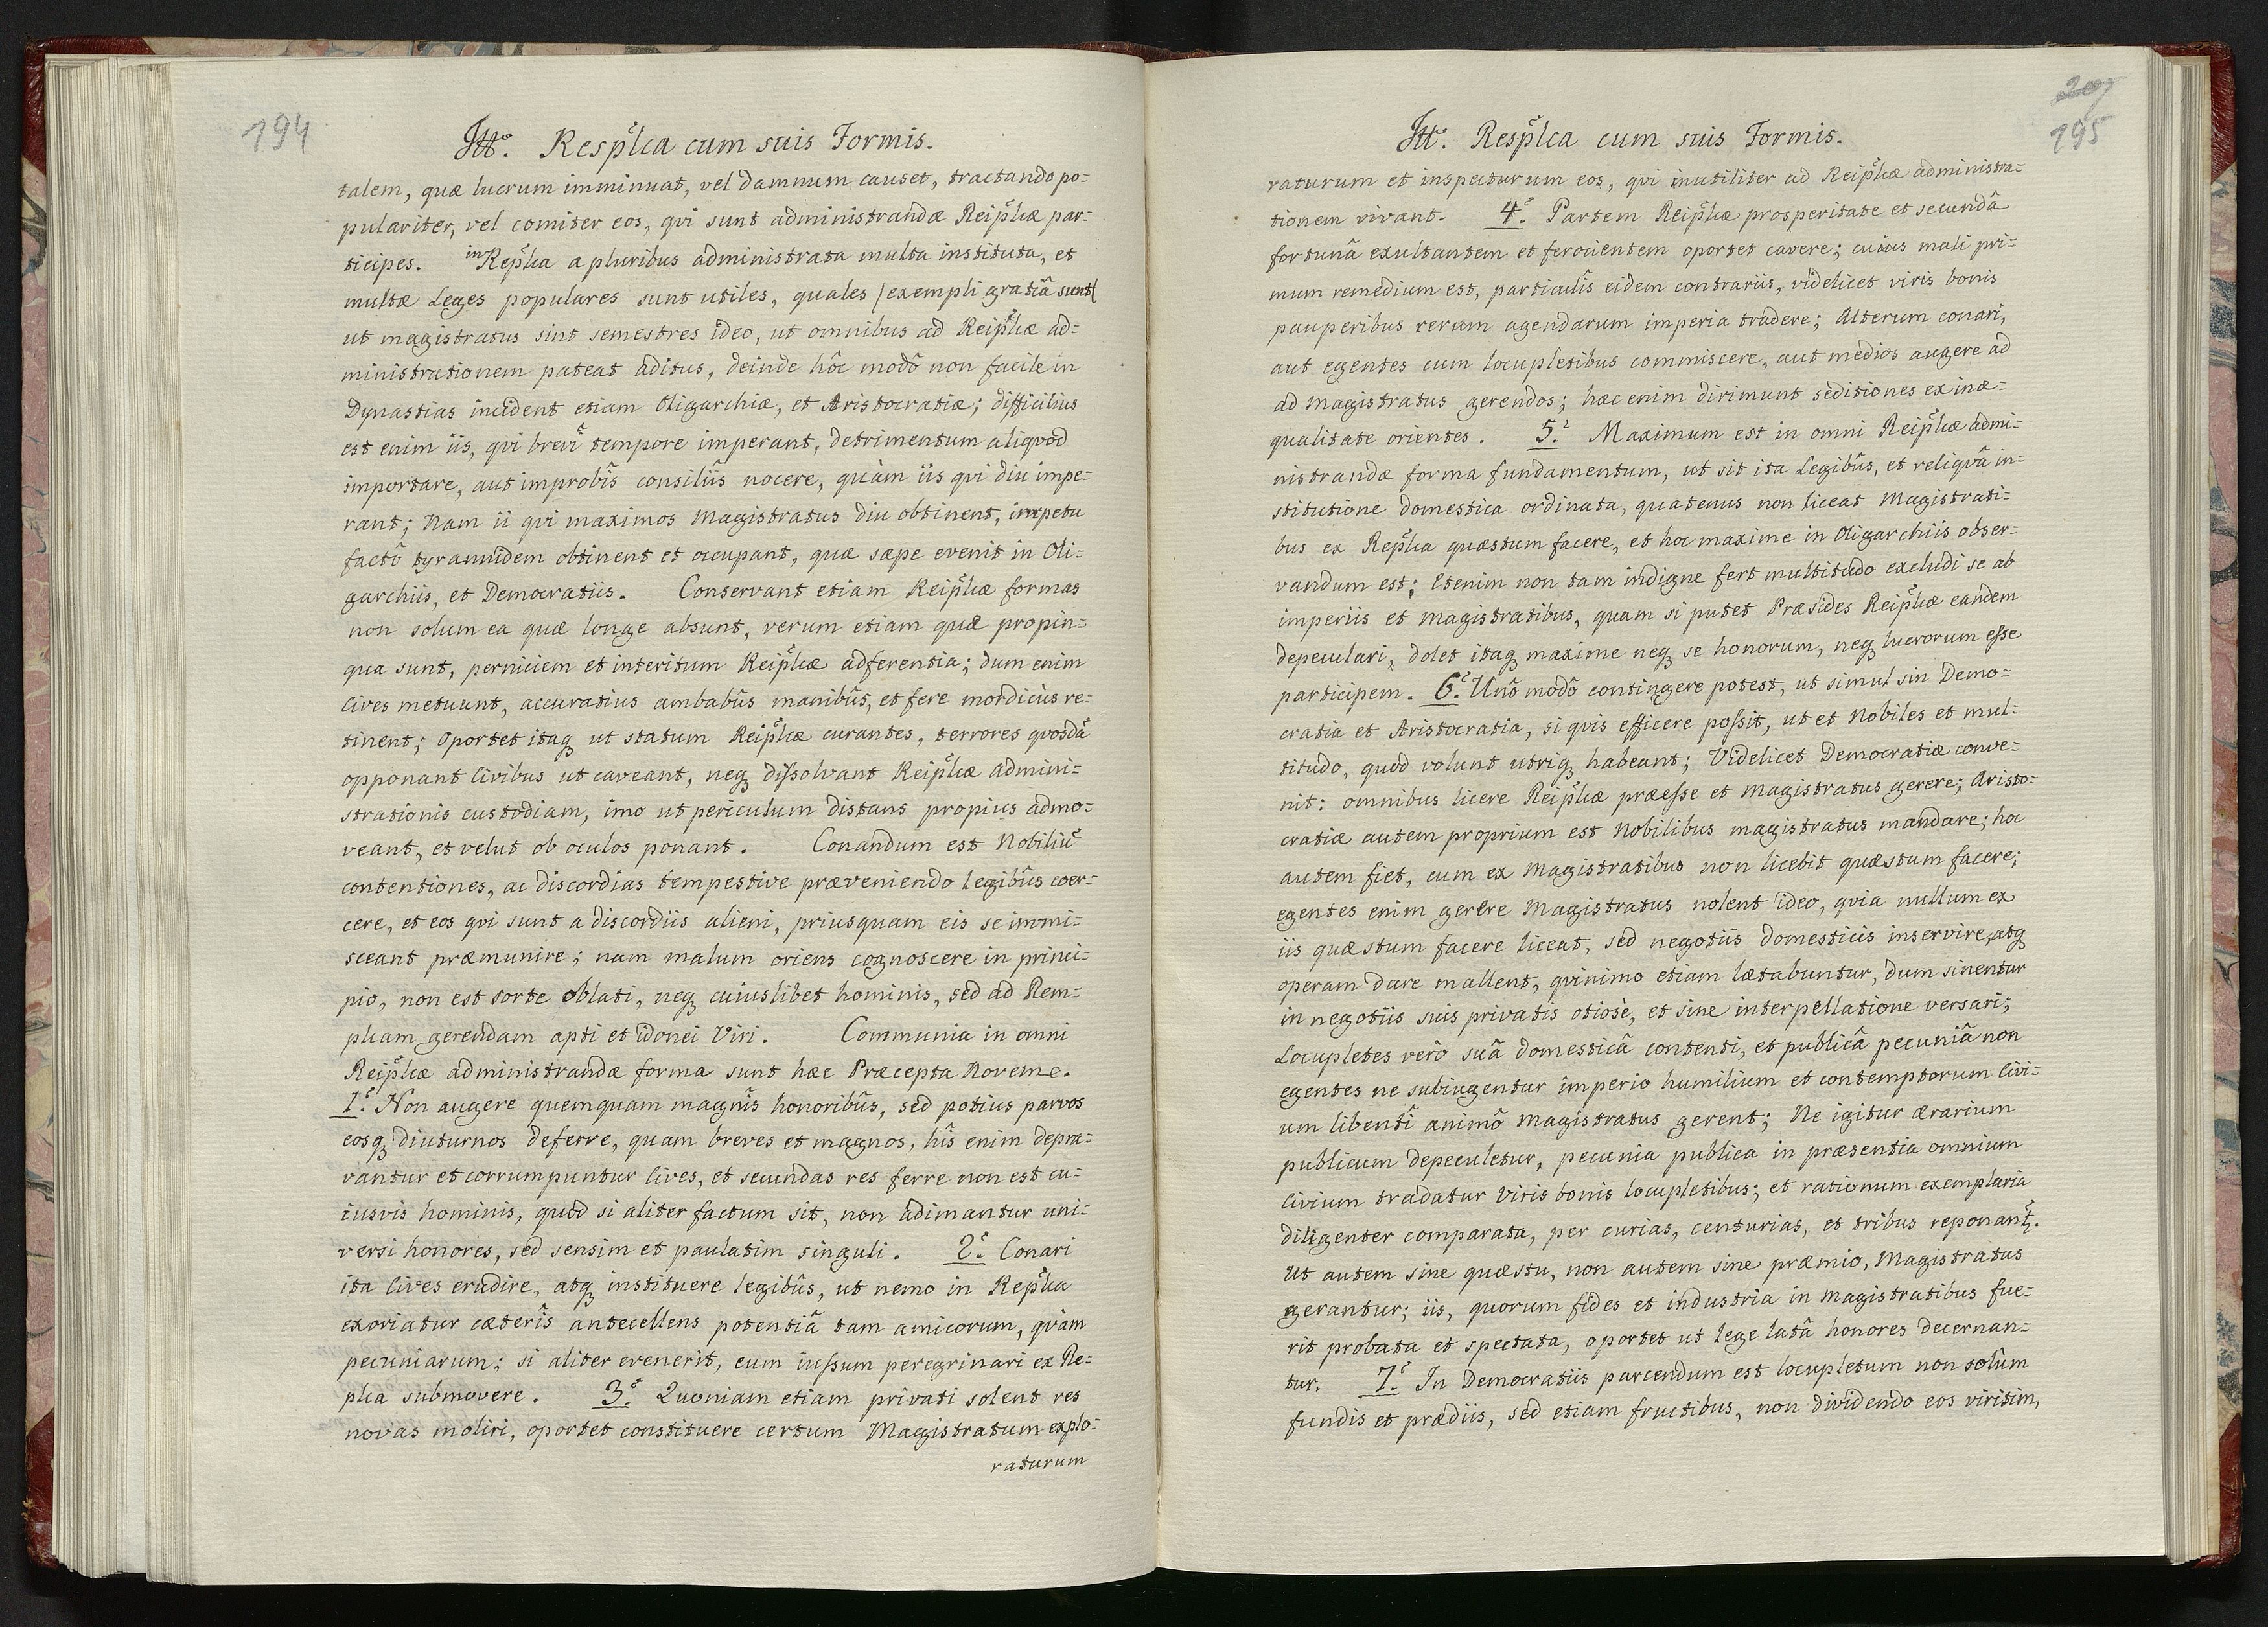 194
Itt. Resp̃lca cum suis Formis.
talem, quæ lucrum imminuat, vel damnum causet, tractando po=
pulariter, vel comiter eos, qvi sunt administrandæ Reip̃lcæ par=
ticipes. in Rep̃lca a pluribus administrata multa instituta, et
multæ Leges populares sunt utiles, quales /exempli gratiâ sunt/
ut magistratus sint semestres ideo, ut omnibus ad Reip̃lcæ ad=
ministrationem pateat aditus, deinde hôc modô non facile in
Dynastias incident etiam Oligarchiæ, et Aristocratiæ; difficilius
est enim iis, qvi brevî tempore imperant, detrimentum aliqvod
importare, aut improbîs consiliîs nocere, quàm iis qvi diu impe=
rant; Nam ii qvi maximos Magistratus diu obtinent, impetu
factô tyrannidem obtinent et occupant, quæ sæpe evenit in Oli=
garchiis, et Democratiis. Conservant etiam Reip̃lcæ formas
non solum ea quæ longe absunt, verum etiam quæ propin=
qua sunt, perniciem et interitum Reip̃lcæ adferentia; dum enim
Cives metuunt, accuratius ambabûs manibûs, et fere mordicùs re=
tinent; oportet itaq ut statum Reip̃lcæ curantes, terrores qvosdã
opponant Civibus ut caveant, neq dissolvant Reip̃lcæ admini=
strationis custodiam, imo ut periculum distans propius admo=
veant, et velut ob oculos ponant. Conandum est Nobiliũ
contentiones, ac discordias tempestive præveniendo legibûs coer=
cere, et eos qvi sunt a discordiis alieni, priusquam eis se immi=
sceant præmunire; nam malum oriens cognoscere in princi=
pio, non est sorte oblati, neq cuiuslibet hominis, sed ad Rem=
plcam gerendam apti et idonei Viri. Communia in omni
Reip̃lcæ administrandæ forma sunt hæc Præcepta Noveme.
1.º Non augere quemquam magnîs honoribûs, sed potius parvos
eosq diuturnos deferre, quam breves et magnos, hîs enim depra=
vantur et corrumpuntur Cives, et secundas res ferre non est cu=
iusvis hominis, quod si aliter factum sit, non adimantur uni=
versi honores, sed sensim et paulatim singuli. 2.º Conari
ita Cives erudire, atq instituere legibûs, ut nemo in Rep̃lca
exoriatur cæterîs antecellens potentiâ tam amicorum, qvàm
pecuniarum; si aliter evenerit, eum iussum peregrinari ex Re=
plca submovere. 3.º Quoniam etiam privati solent res
novas moliri, oportet constituere certum Magistratum explo=
raturum
207
195
Itt. Resp̃lca cum suis Formis.
raturum et inspecturum eos, qvi inutiliter ad Reip̃lcæ administra=
tionem vivant. 4.º Partem Reip̃lcæ prosperitate et secundâ
fortunâ exultantem et ferocientem oportet cavere; cuius mali pri=
mum remedium est, particulîs eidem contrariis, videlicet viris bonis
pauperibus rerum agendarum imperia tradere; Alterum conari,
aut egentes cum locupletibus commiscere, aut medios augere ad
ad magistratus gerendos; hæc enim dirimunt seditiones ex inæ=
qualitate orientes. 5.º Maximum est in omni Reip̃lcæ admi=
nistrandæ forma fundamentum, ut sit ita Legibûs, et reliqvâ in=
stitutione domestica ordinata, quatenus non liceat Magistrati=
bus ex Rep̃lca quæstum facere, et hoc maxime in Oligarchiis obser=
vandum est; Etenim non tam indigne fert multitudo excludi se ab
imperiis et magistratibus, quam si putet Præsides Reip̃lcæ eandem
depeculari, dolet itaq maxime neq se honorum, neq lucrorum esse
participem. 6.º Unô modô contingere potest, ut simul sin Demo=
cratia et Aristocratia, si qvis efficere possit, ut et Nobiles et mul=
titudo, quod volunt utriq habeant; Videlicet Democratiæ conve=
nit: omnibus licere Reip̃lcæ præesse et Magistratus gerere; Aristo=
cratiæ autem proprium est Nobilibus magistratus mandare; hoc
autem fiet, cum ex Magistratibus non licebit quæstum facere;
egentes enim gerere Magistratus nolent ideo, qvia nullum ex
iis quæstum facere liceat, sed negotiis domesticis inservire, atq
operam dare mallent, qvinimo etiam lætabuntur, dum sinentur
in negotiis suis privatis otiosè, et sine interpellatione versari;
Locupletes verò suâ domesticâ contenti, et publicâ pecuniâ non
egentes ne subiugentur imperio humilium et contemptorum Civi=
um libentî animô Magistratus gerent; Ne igitur ærarium
publicum depeculetur, pecunia publica in præsentia omnium
Civium tradatur Viris bonis locupletibus; et rationum exemplaria
diligenter comparata, per curias, centurias, et tribus reponant̃.
Ut autem sine quæstu, non autem sine præmio, Magistratus
gerantur; iis, quorum fides et industria in magistratibus fue=
rit probata et spectata, oportet ut lege latâ honores decernan=
tur. 7.º In Democratiis parcendum est locupletum non solùm
fundis et prædiis, sed etiam fructibus, non dividendo eos viritim,